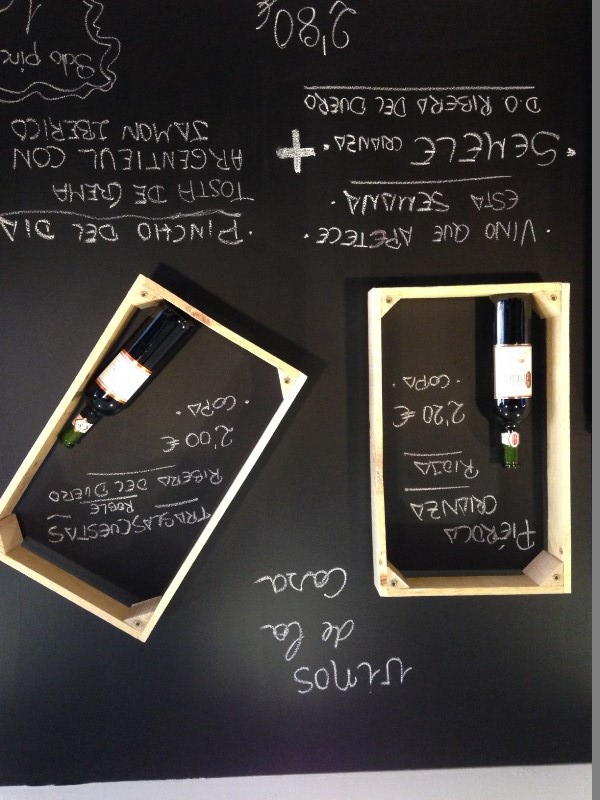 vinos
de la
Casa
PIÉROLA
CRIANZA
RIOJA
2'20 €
· COPA ·
TRASLASCUESTAS
ROBLE
RIBERA DEL DUERO
2'00 €
· COPA ·
· VINO QUE APETECE ·
ESTA SEMANA ·
· SEMELE CRIANZA ·
D.O RIBERA DEL DUERO
+
· PINCHO DEL DIA
TOSTA DE CREMA
ARGENTIEUL CON
JAMON IBERICO
2'80 €
Solo pinc
1